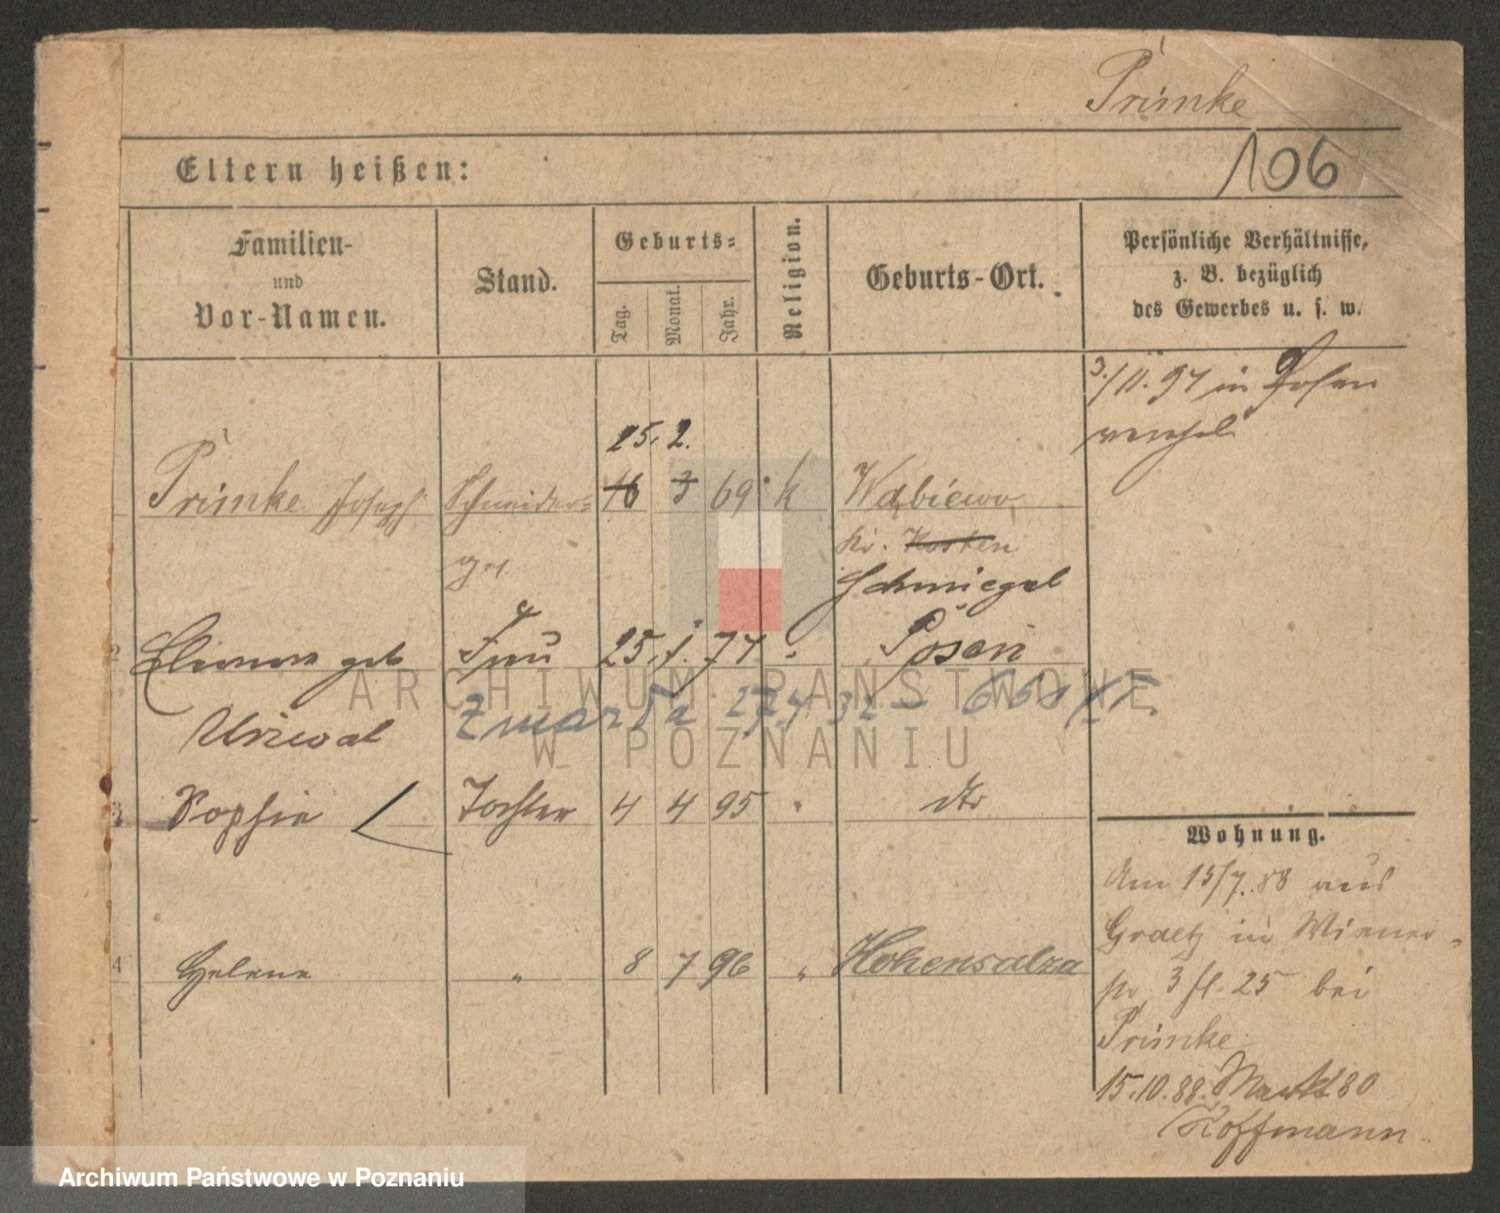 Primke
106
Eltern heißen:
Familien-
und
Vor-Namen.
Stand.
Geburts-
Tag.
Monat.
Jahr.
Religion.
Geburts-Ort.
Persönliche Verhältnisse,
z. B. bezüglich
des Gewerbes u. s. w.
3./11. 97 in Posen
25. 2.
Primke Joseph Schneider= 16 3 69 k Wąbiewo
ges. Kr. Kosten
Schmiegel
2 Eleonore geb Frau 25. 1. 71 " Posen
zmarła 27.4 32
3 Sophie Tochter 4 4 95 " dto
Wohnung.
Am 15/7. 88 aus
Graetz in Wiener-
4 Helene " 8 7 96 " Hohensalza
str 3 fl. 25 bei
Primke
15.10.88. Markt 80
Hoffmann
ARCHIWUM PAŃSTWOWE
W POZNANIU
Archiwum Państwowe w Poznaniu